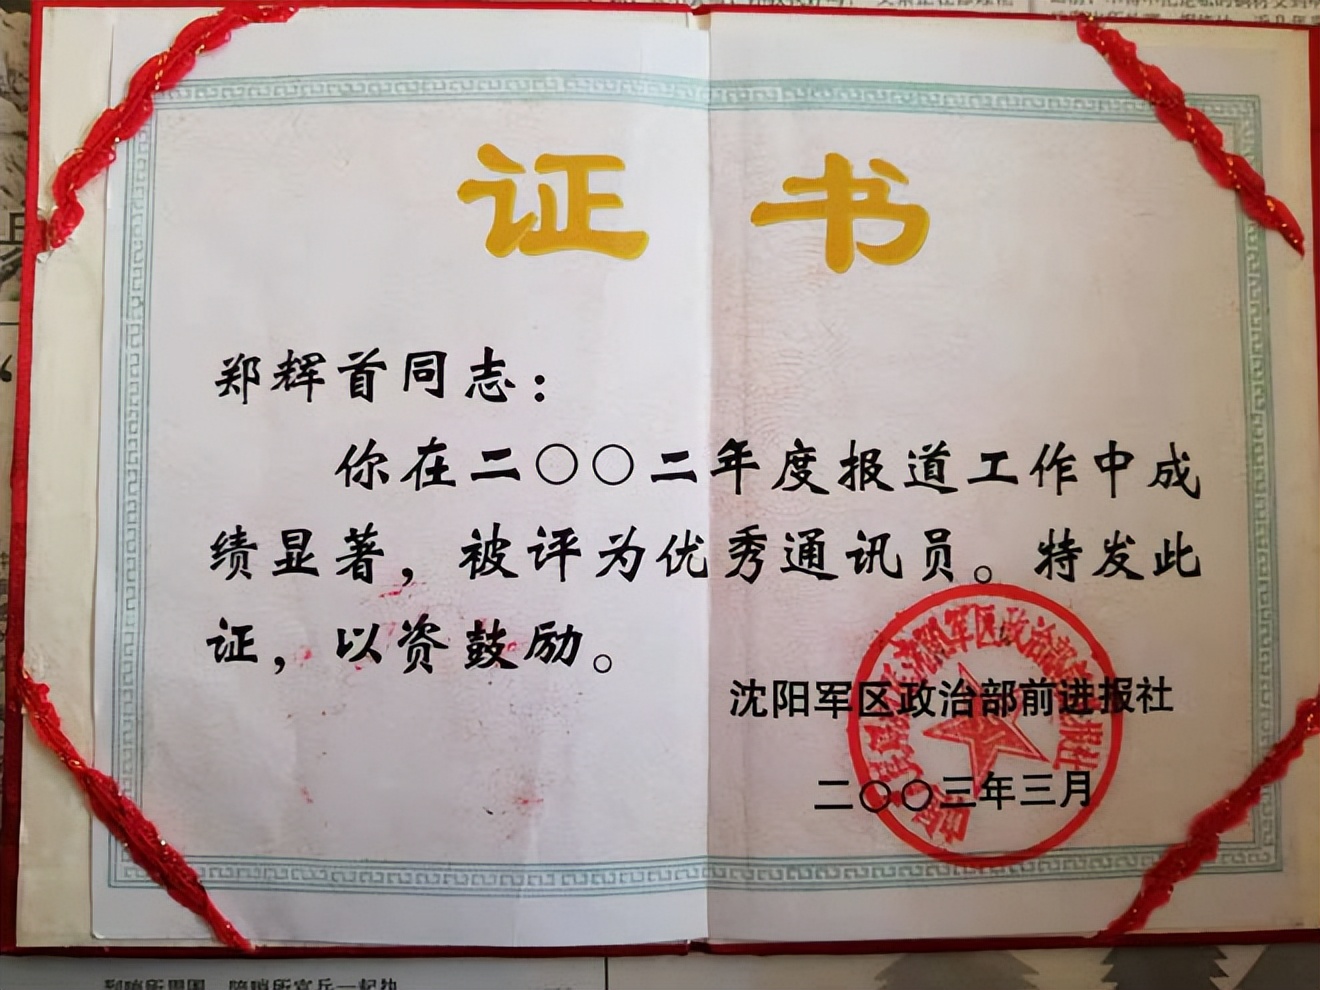 证书
郑辉首同志：
你在二〇〇二年度报道工作中成
绩显著，被评为优秀通讯员。特发此
证，以资鼓励。
沈阳军区政治部前进报社
二〇〇三年三月
沈阳军区政治部前进报社
到哨所周围，陪哨所官兵一起执